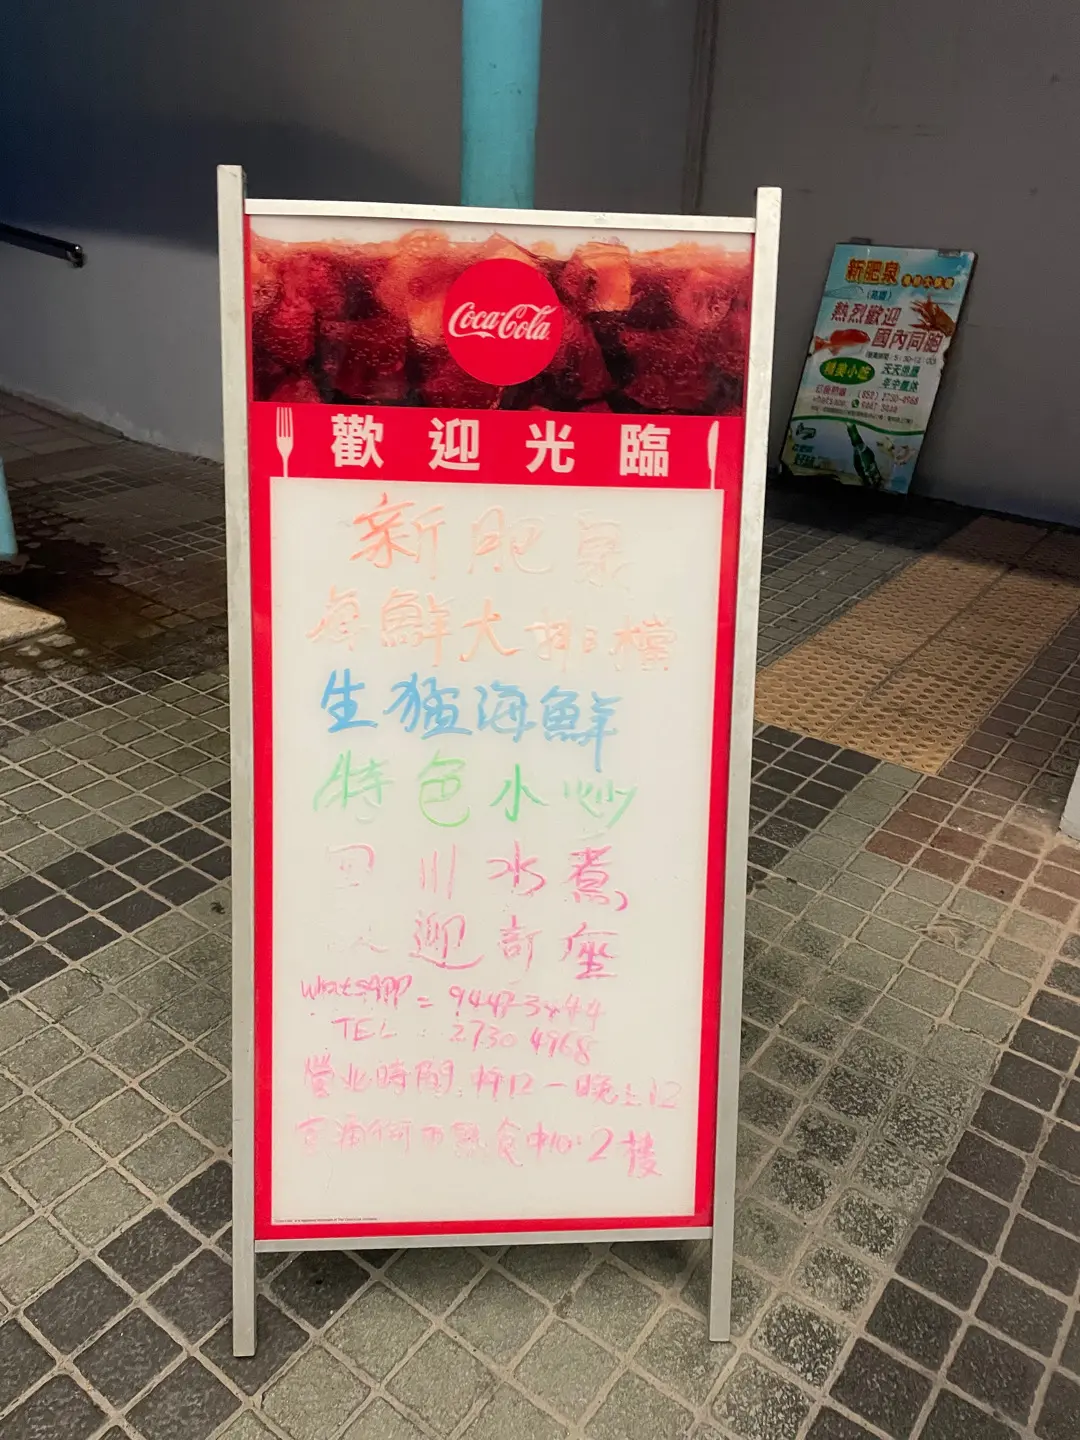 Coca-Cola
歡迎光臨
新肥泉
海鮮大排檔
生猛海鮮
特色小炒
四川水煮
迎訂座
WhatsAPP =
TEL : 2730 4968
營业時間: 12 一晚上12
食中心 2樓
新肥泉
熱烈歡迎
國內同胞
精美小吃
天天
年中無休
(852) 2730-4968